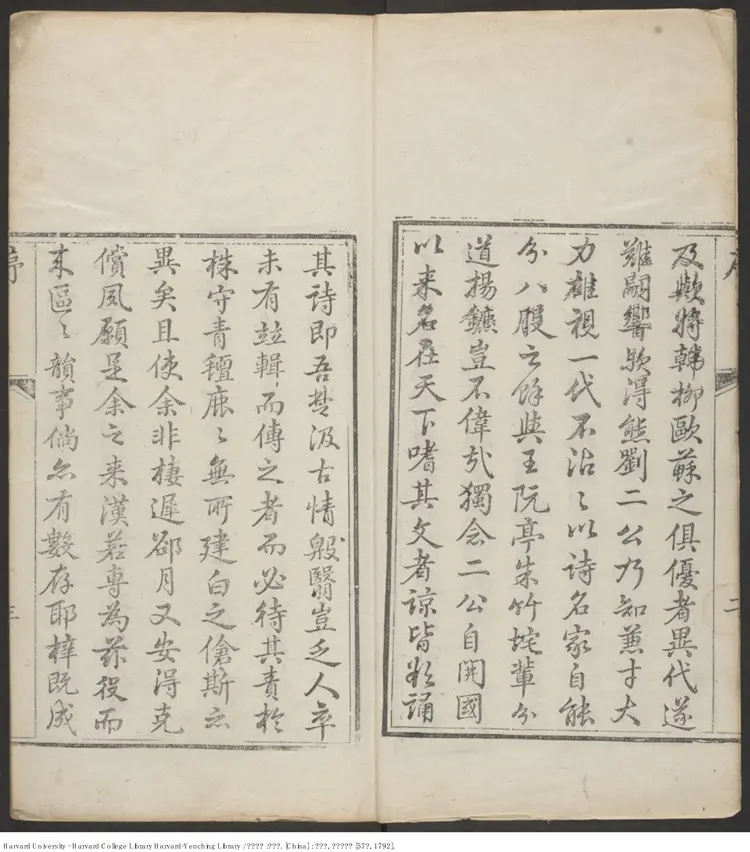 及歟將韓柳歐蘇之俱優者異代遂
難嗣響歟得熊劉二公乃知蒹才大
力雄視一代不沾〻以詩名家自能
分八股之餘與王阮亭朱竹垞輩分
道揚鑣豈不偉哉獨念二公自開國
以来名在天下嗜其文者諒皆欲誦
其詩即吾楚汲古情殷豈乏人卒
未有並輯而傳之者而必待其責於
株守青氊鹿〻無所建白之傖斯亦
異矣且使余非棲遲郧月又安得克
償夙願是余之来漢若專為茲役而
来區〻韻事倘亦有數存耶梓既成
序
二
三
Harvard University - Harvard College Library Harvard-Yenching Library / ???? : ???. [China] : ???, ????? [57?, 1792].